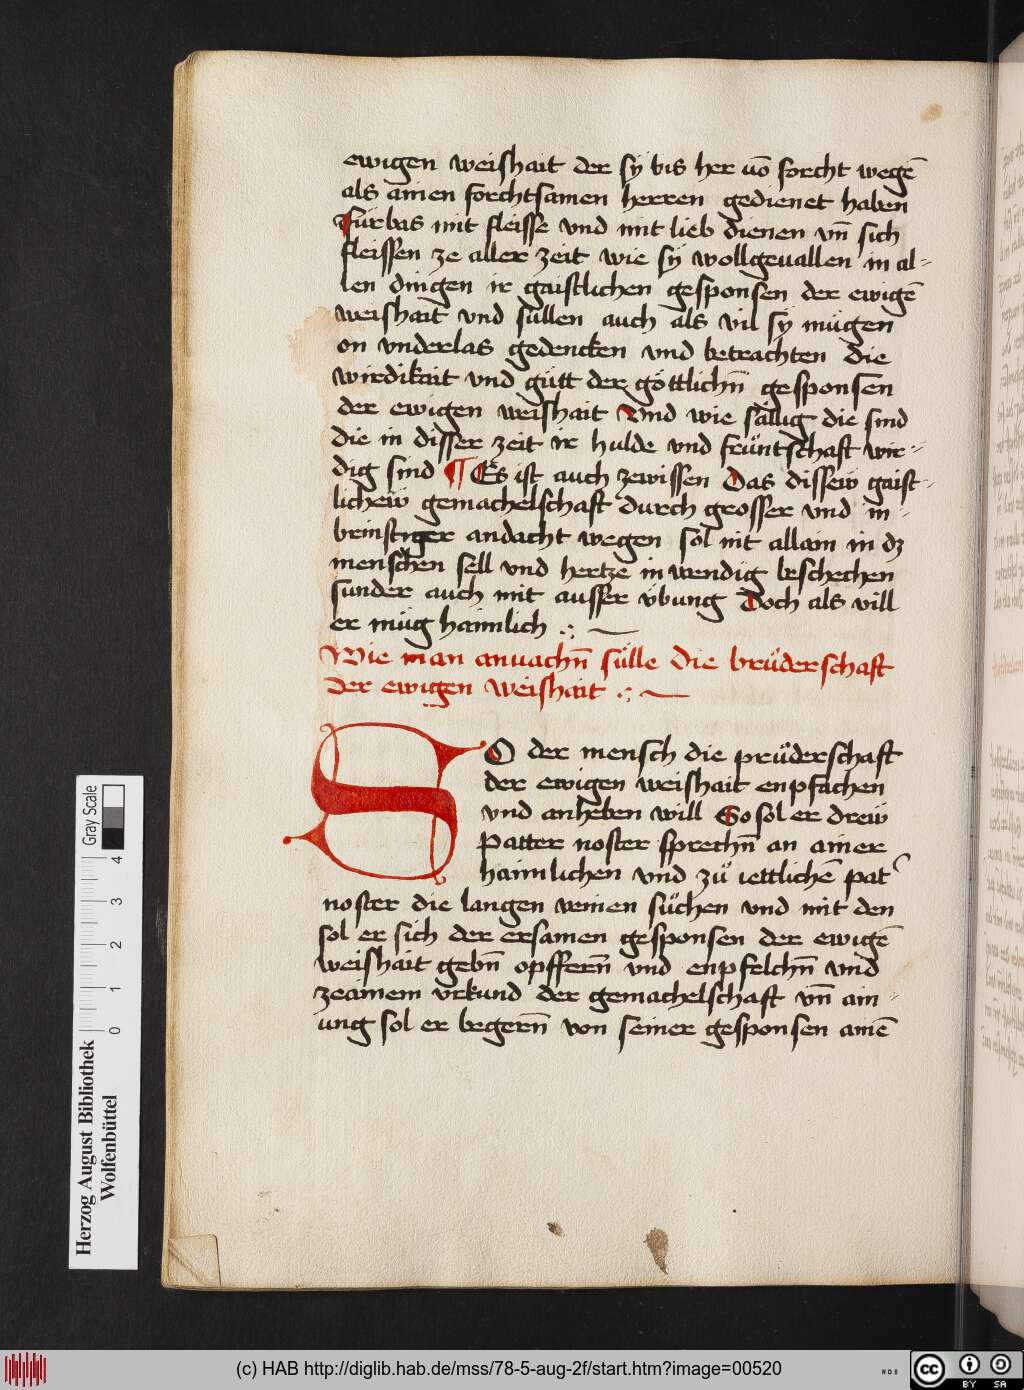 ewigen weishait der sÿ bis her uō forcht wegē
als amen forchtsamen herren gedienet haben
Fürbas mit fleisse vnd mit lieb dienen vn̄ sich
fleissen ze aller zeit wie sÿ wollgeuallen in al-
len dingen ir gaistlichen gesponsen der ewigē
weishait vnd süllen auch als vil sÿ mügen
on vnderlas gedencken vnd betrachten die
wirdikait vnd gütt der göttlichn̄ gesponsen
der ewigen weishait Vnd wie sällig die sind
die in disser zeit ir hulde vnd früntschaft wir-
dig sind ¶ Es ist auch zewissen Das dissew̋ gaist-
lichew̋ gemachelschaft durch grosser vnd in-
brinstiger andacht wegen sol nit allain in dz
menschen sell vnd hertze inwendig beschechen
sunder auch mit ausser v̈bung Doch als vill
er müg haimlich
Wie man anvachn̄ sülle die brüderschaft
der ewigen weishait
SO der mensch die prüderschaft
der ewigen weishait enpfachen
vnd anheben will So sol er drew̋
Patter noster sprechn̄ an ainer
haimlichen vnd zů iettlichē pat᾽
noster die langen venien süchen vnd mit den
sol er sich der ersamen gesponsen der ewigē
weishait gebn̄ opffern̄ vnd enpfelchn̄ vnd
zeainem vrkund der gemachelschaft vn̄ ain-
ung sol er begern̄ von seiner gesponsen ainē
Herzog August Bibliothek
Wolfenbüttel
0 1 2 3 4
Gray Scale
(c) HAB http://diglib.hab.de/mss/78-5-aug-2f/start.htm?image=00520
WDB
cc BY SA